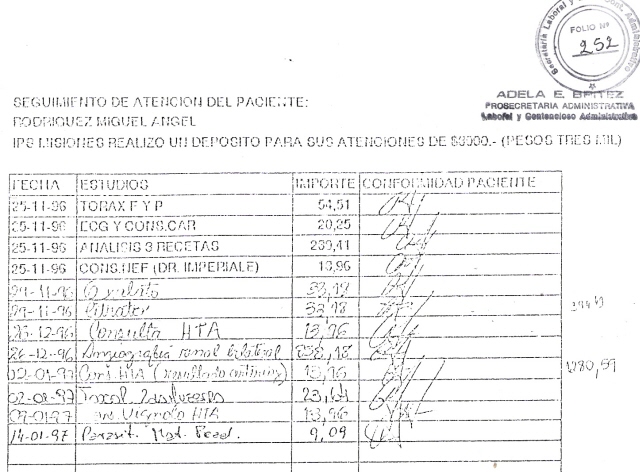 Secretaría Laboral y Cont. Administrativo
FOLIO Nº
252
ADELA E. BENITEZ
PROSECRETARIA ADMINISTRATIVA
Laboral y Contencioso Administrativo
SEGUIMIENTO DE ATENCION DEL PACIENTE:
RODRIGUEZ MIGUEL ANGEL
IPS MISIONES REALIZO UN DEPOSITO PARA SUS ATENCIONES DE $3000.- (PESOS TRES MIL)
FECHA ESTUDIOS IMPORTE CONFORMIDAD PACIENTE
25-11-96 TORAX F Y P 54,51
25-11-96 ECG Y CONS.CAR 20,25
25-11-96 ANALISIS 3 RECETAS 239,41
25-11-96 CONS.NEF (DR. IMPERIALE) 13,96
29-11-96
29-11-96
26-12-96 Consulta HTA 13,96
26-12-96 Angiografia renal bilateral
02-01-97 Cons HTA 13,96
1280,59
02-01-97 23,64
09-01-97 HTA 13,96
14-01-97 Parasit. Mat. Fecal. 9,09